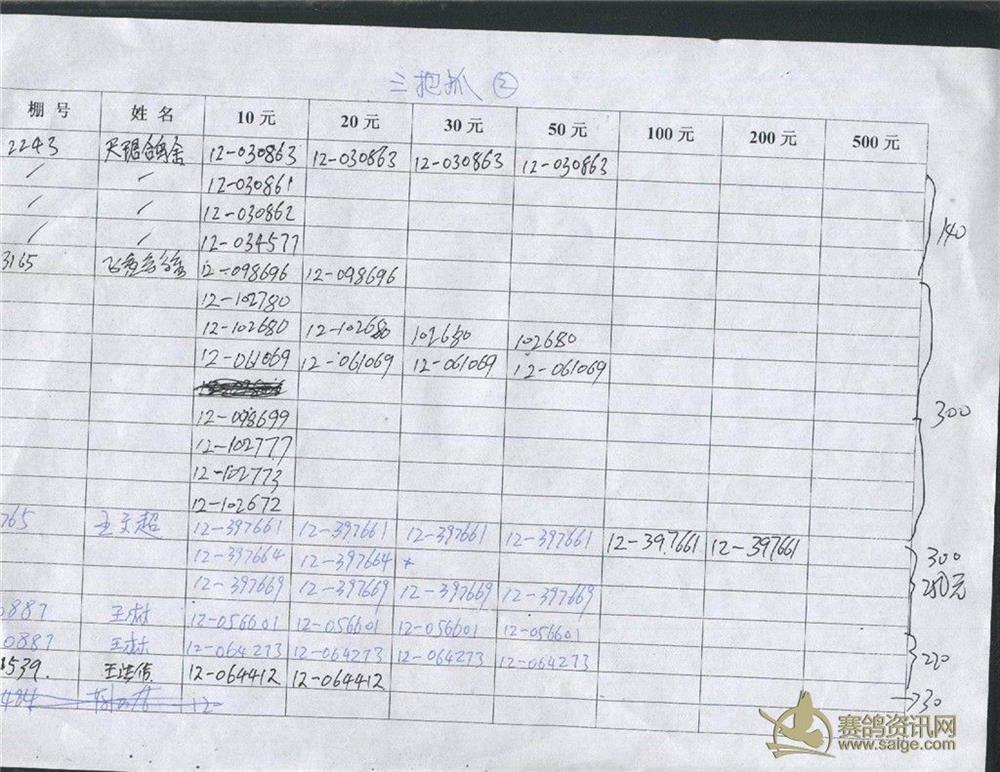 三把抓 ②
棚号 姓名 10元 20元 30元 50元 100元 200元 500元
2243 12-030863 12-030863 12-030863 12-030863
/ / 12-030861
/ / 12-030862
/ / 12-034577
140
3165 12-098696 12-098696
12-102780
12-102680 12-102680 102680 102680
12-061069 12-061069 12-061069 12-061069
12-098699
300
12-102777
12-102773
12-102672
765 王文超 12-397661 12-397661 12-397661 12-397661 12-397661 12-397661
12-397664 12-397664
300
12-397669 12-397669 12-397669 12-397669
280元
0887 王林 12-056601 12-056601 12-056601 12-056601
0887 王林 12-064273 12-064273 12-064273 12-064273
220
1539. 12-064412 12-064412
30
484 12-
赛鸽资讯网
www.saige.com